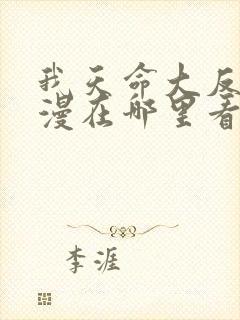 我天命大反
漫在哪里看
李涯